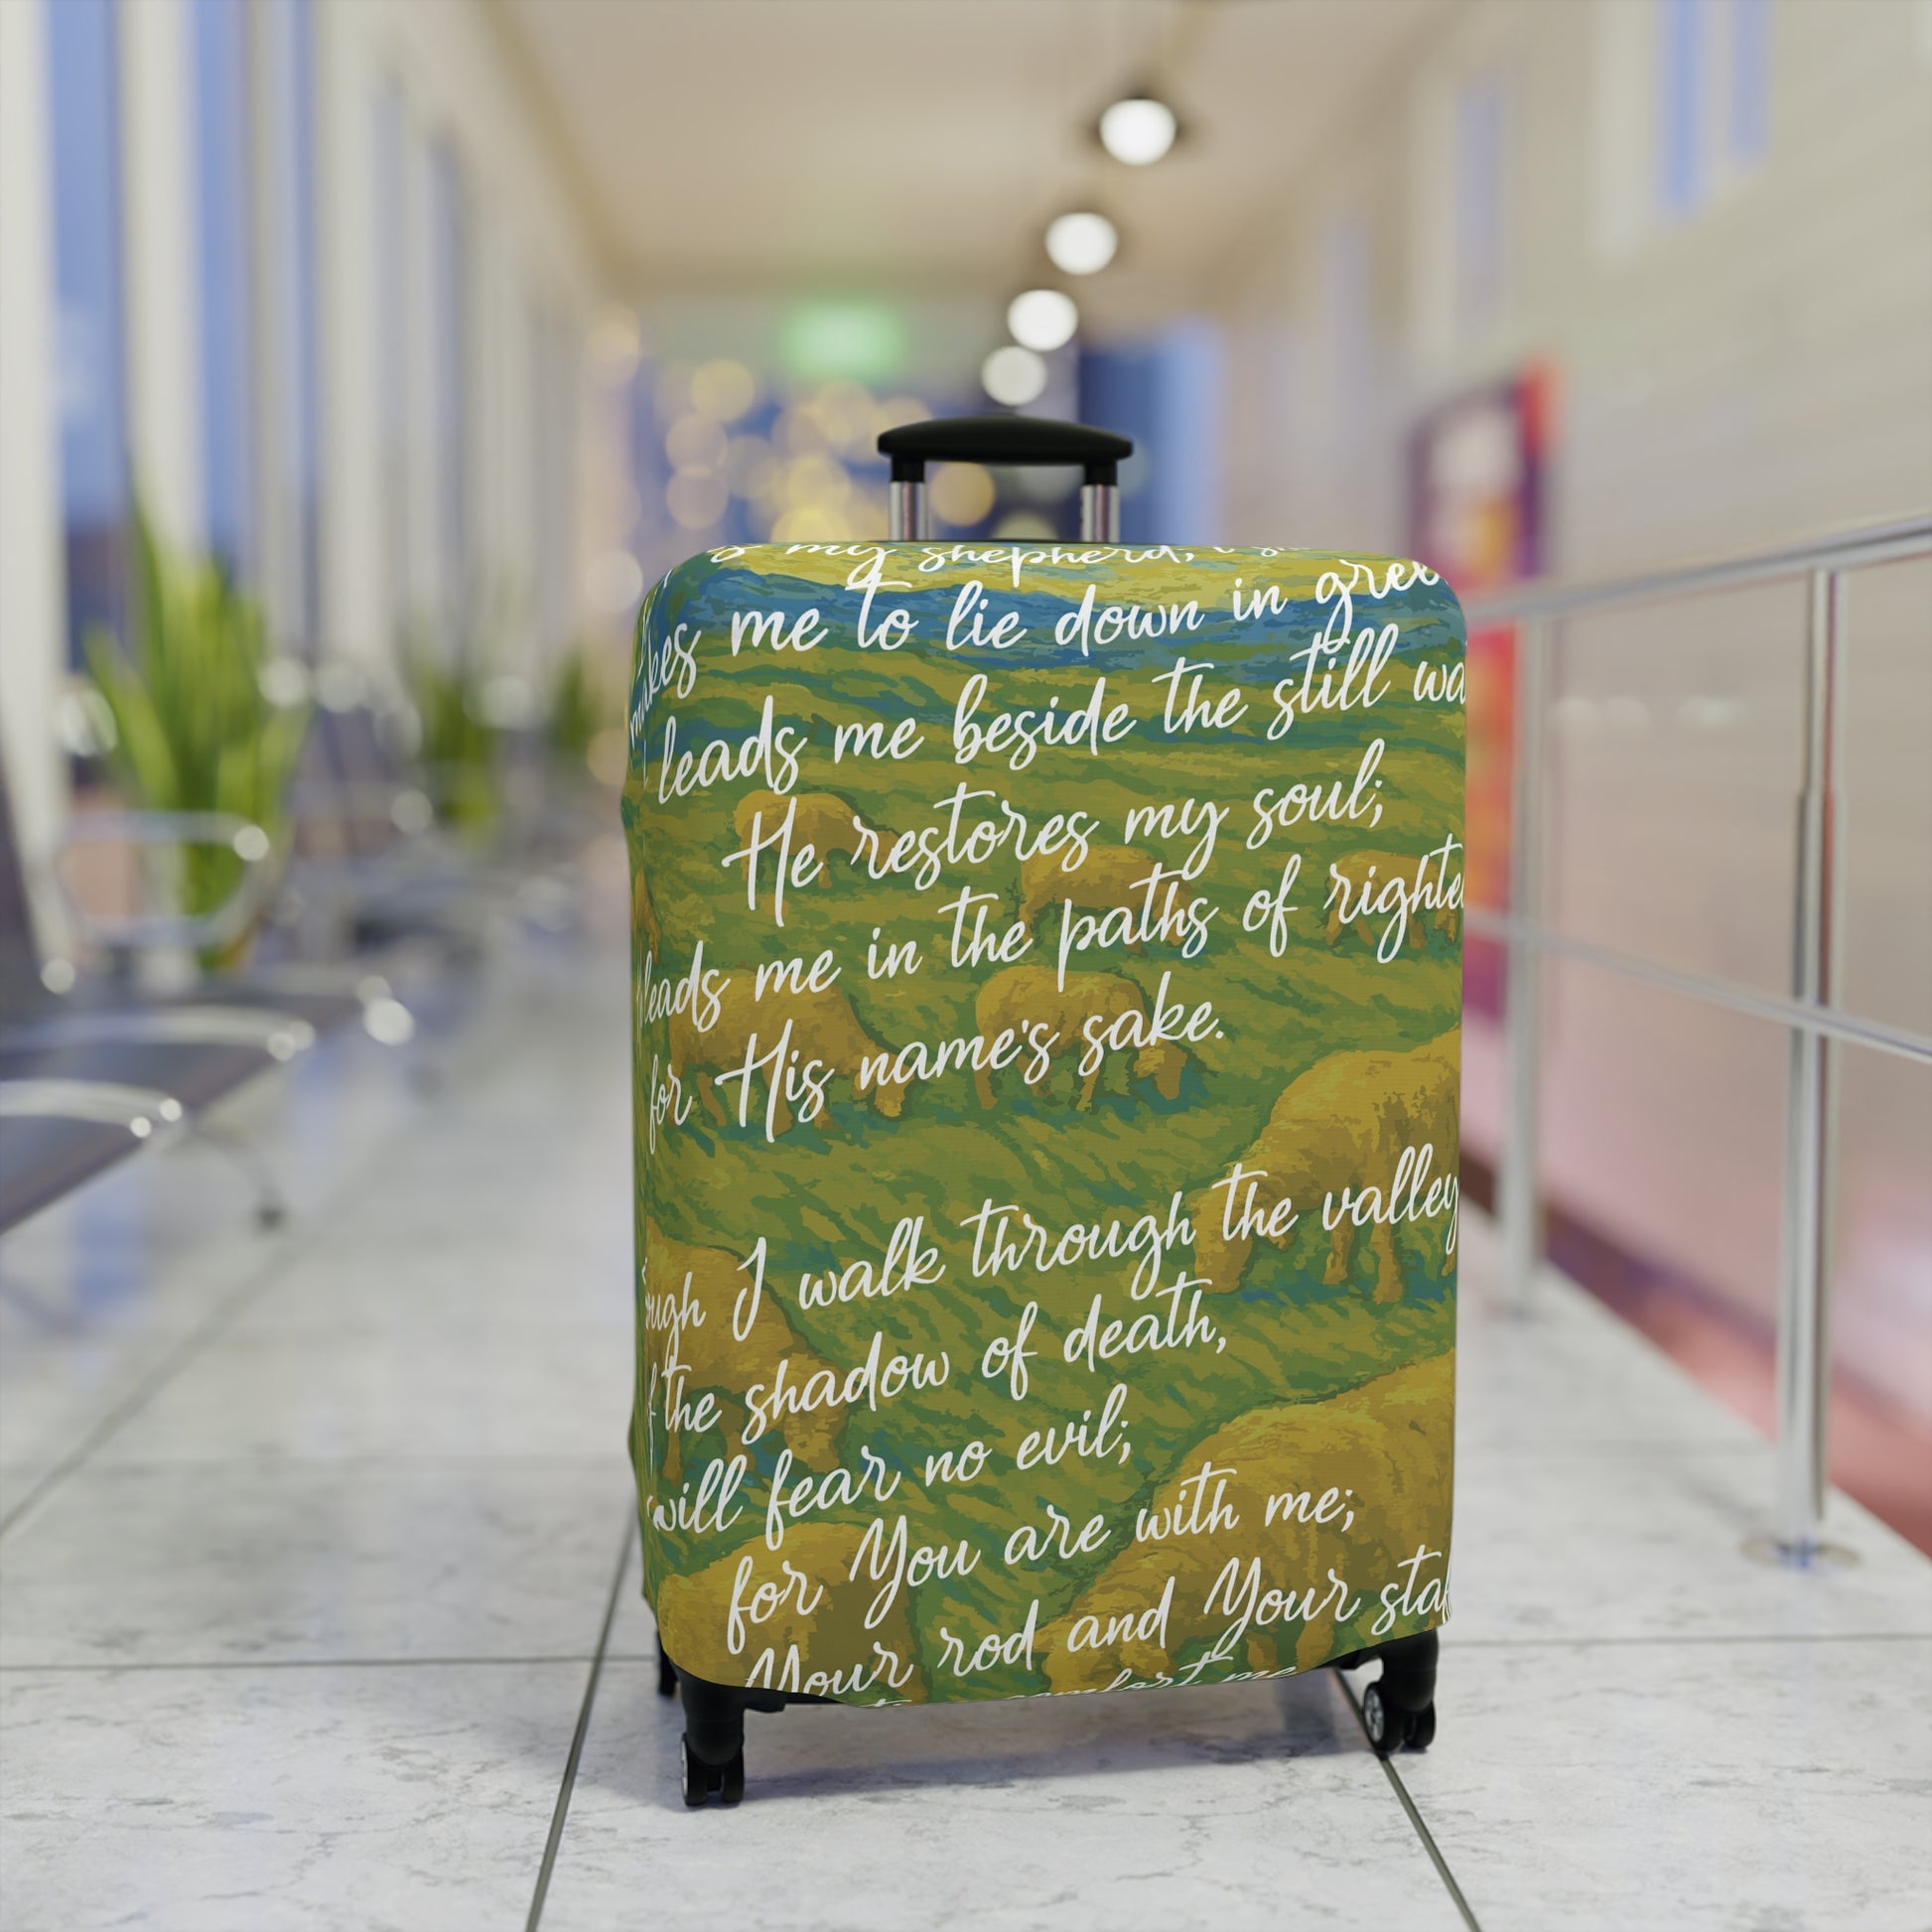 my shepherd, I
me to lie down in
leads me beside the still
He restores my soul;
leads me in the paths of
for His name's sake.
I walk through the valley
the shadow of death,
will fear no evil;
for You are with me;
Your rod and Your
comfort me